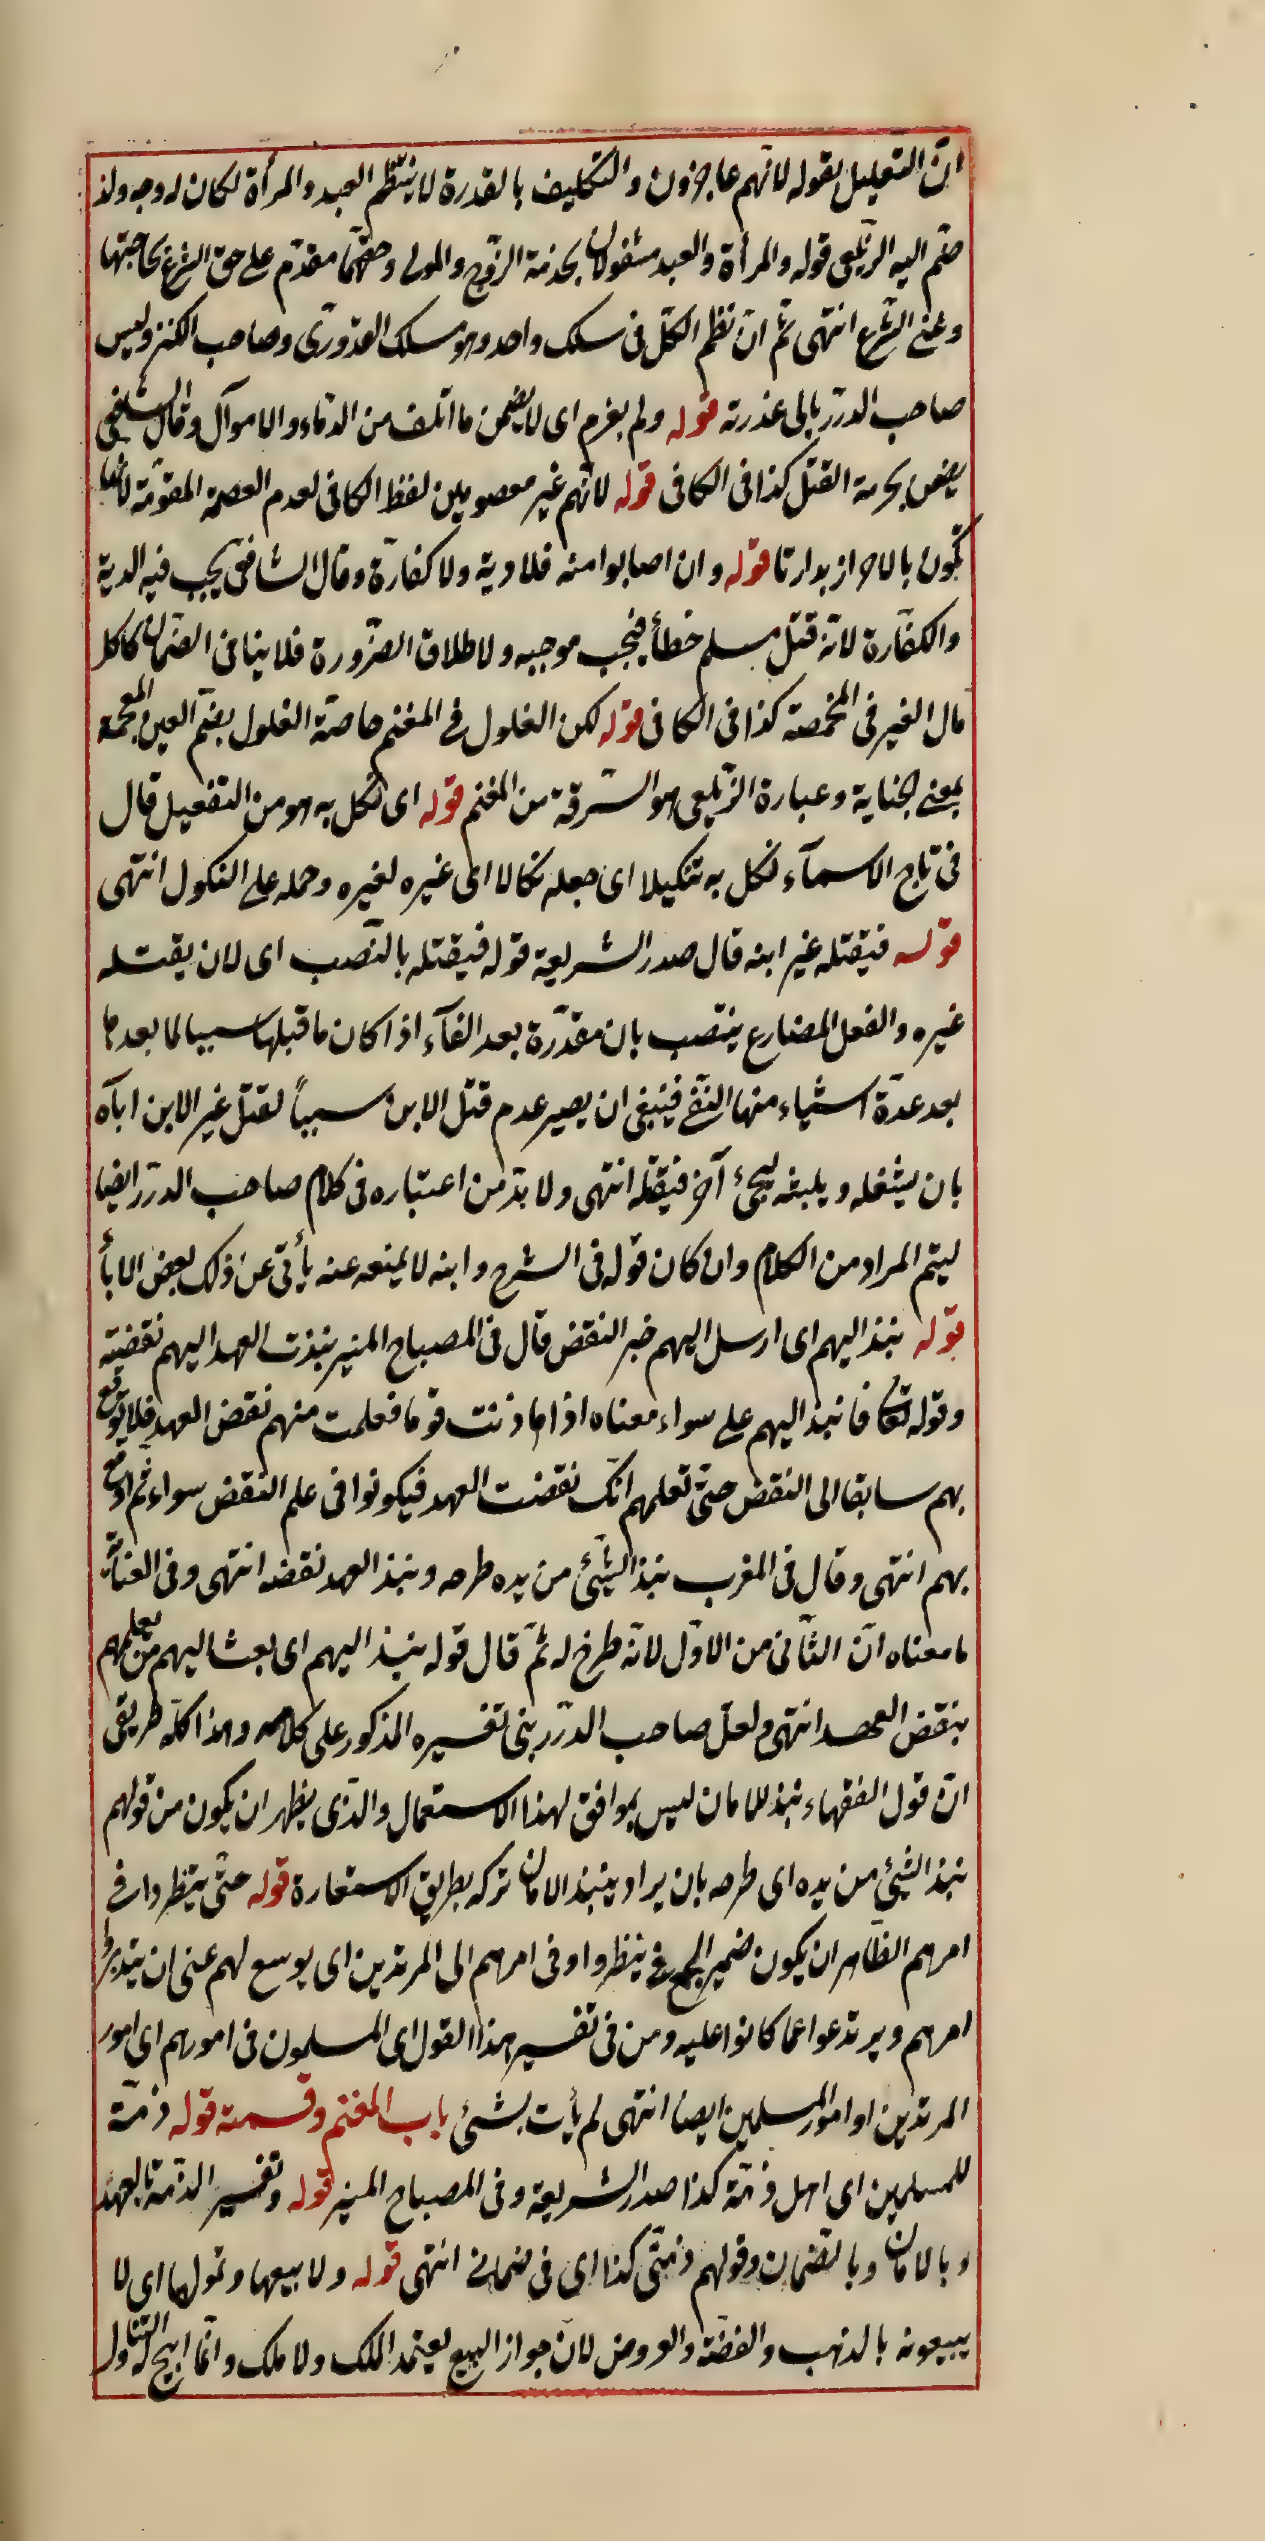 انّ التعليل بقوله لانّهم عاجزون والتكليف بالقدرة لا ينتظم العبد والمرأة لكان له وجه ولذ
ضمّ اليه الزيلعى قوله والمرأة والعبد مشغولان بخدمة الزّوج والمولى وحقهما مقدّم على حق الشرع بحاجتها
وغنى الشرع انتهى ثم ان نظم الكلّ فى سلك واحد وهو مسلك القدّورى وصاحب الكنز وليس
صاحب الدرر بابى عذرته قوله ولم يغرم اى لا يضمن ما اتلف من الدماء والاموال وقال الشافعى
يضمن بحرمة القتل كذا فى الكافى قوله لانّهم غير معصومين لفظ الكافى لعدم العصمة المقوّمة لانها
تكون بالاحراز بدارنا قوله وان اصابوا منه فلا دية ولا كفارة وقال الشافعى يجب فيه الدية
والكفّارة لانّه قتل مسلم خطأ فيجب موجبه ولاطلاق الضّرورة فلا ينافى الضمان كاكل
مال الغير فى المخمصة كذا فى الكافى قوله لكن الغلول فى المغنم خاصّة الغلول بضمّ الغين المعجمة
بمعنى الخناية وعبارة الزيلعى هو السّرقة من المغنم قوله اى نكل به هو من التفعيل قال
فى تاج الاسمآء نكل به تنكيلا اى جعله نكالا اى غيره لغيره وحمله على النكول انتهى
قوله فيقتله غير ابنه قال صدر الشريعة قوله فيقتله بالنّصب اى لان يقتله
غيره والفعل المضارع ينتصب بان مقدّرة بعد الفآء اذا كان ما قبلها سببا لما بعدها
بعد عدّة اشياء منها النّفى فينبغى ان يصير عدم قتل الابن سبباً لقتل غير الابن اباه
بان يشغله ويلبثه ليجئ آخر فيقتله انتهى ولا بدّ من اعتباره فى كلام صاحب الدرر ايضا
ليتم المراد من الكلام وان كان قوله فى الشرح وابنه لا يمنعه عنه يأبى عن ذلك بعض الابأ
قوله نبذ اليهم اى ارسل اليهم خبر النقض قال فى المصباح المنير نبذت العهد اليهم نقضته
وقوله تعا فانبذ اليهم على سواء معناه اذا هادنت قوما فعلمت منهم نقض العهد فلا توقع
بهم سابقا الى النقض حتّى تعلمهم انّك نقضت العهد فيكونوا فى علم النقض سواء ثم اوقع
بهم انتهى وقال فى المغرب نبذ الشّئ من يده طرحه ونبذ العهد نقضه انتهى وفى العناية
ما معناه انّ الثّانى من الاوّل لانّه طرح له ثمّ قال قوله نبذ اليهم اى بعث اليهم من يعلمهم
بنقض العهد انتهى ولعلّ صاحب الدّرر بنى تفسيره المذكور على كلامه وهذا كله طريقى
انّ قول الفقهاء نبذ للامان ليس بموافق لهذا الاستعمال والذّى يظهر ان يكون من قولهم
نبذ الشّئ من يده اى طرحه بان يراد بنبذ الامان تركه بطريق الاستعارة قوله حتّى ينظروا فى
امرهم الظّاهر ان يكون ضمير الجمع فى ينظروا وفى امرهم الى المرتدين اى يوسع لهم عنى ان يتدبروا
امرهم ويرتدعوا عما كانوا عليه ومن فى تفسير هذا القول اى المسلمون فى امورهم اى امور
المرتدين او امور المسلمين ايضا انتهى لم يأت بشئ باب المغنم وقسمته قوله ذمّة
للمسلمين اى اهل ذمّة كذا صدر الشريعة وفى المصباح المنير قوله وتفسير الذمّة بالعهد
وبالامان وبالضّمان وقولهم ذمتى كذا اى فى ضمانى انتهى قوله ولا بيعها وتمولها اى لا
يبيعونه بالذهب والفضّة والعروض لانّ جواز البيع يعتمد الملك ولا ملك وانّما ابيح له التناول